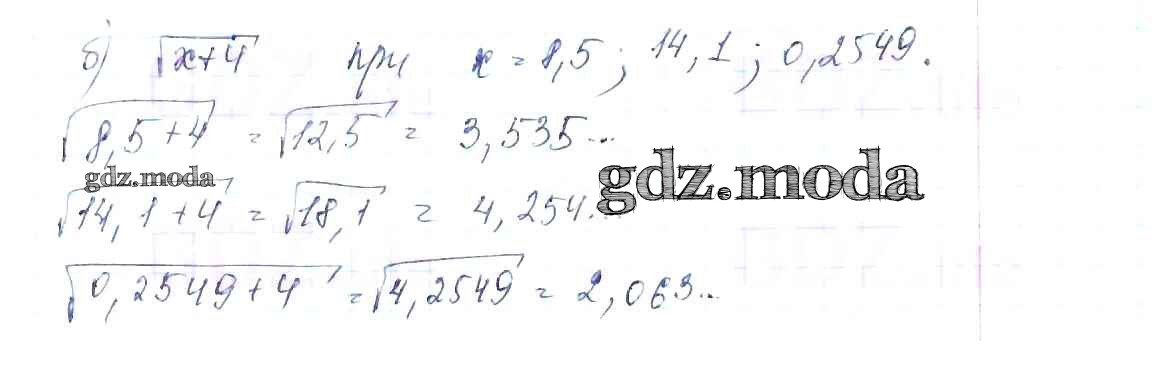 б) √x+4 при x = 8,5; 14,1; 0,2549.
√8,5+4 = √12,5 = 3,535...
gdz.moda
gdz.moda
√14,1+4 = √18,1 = 4,254...
√0,2549+4 = √4,2549 = 2,063...